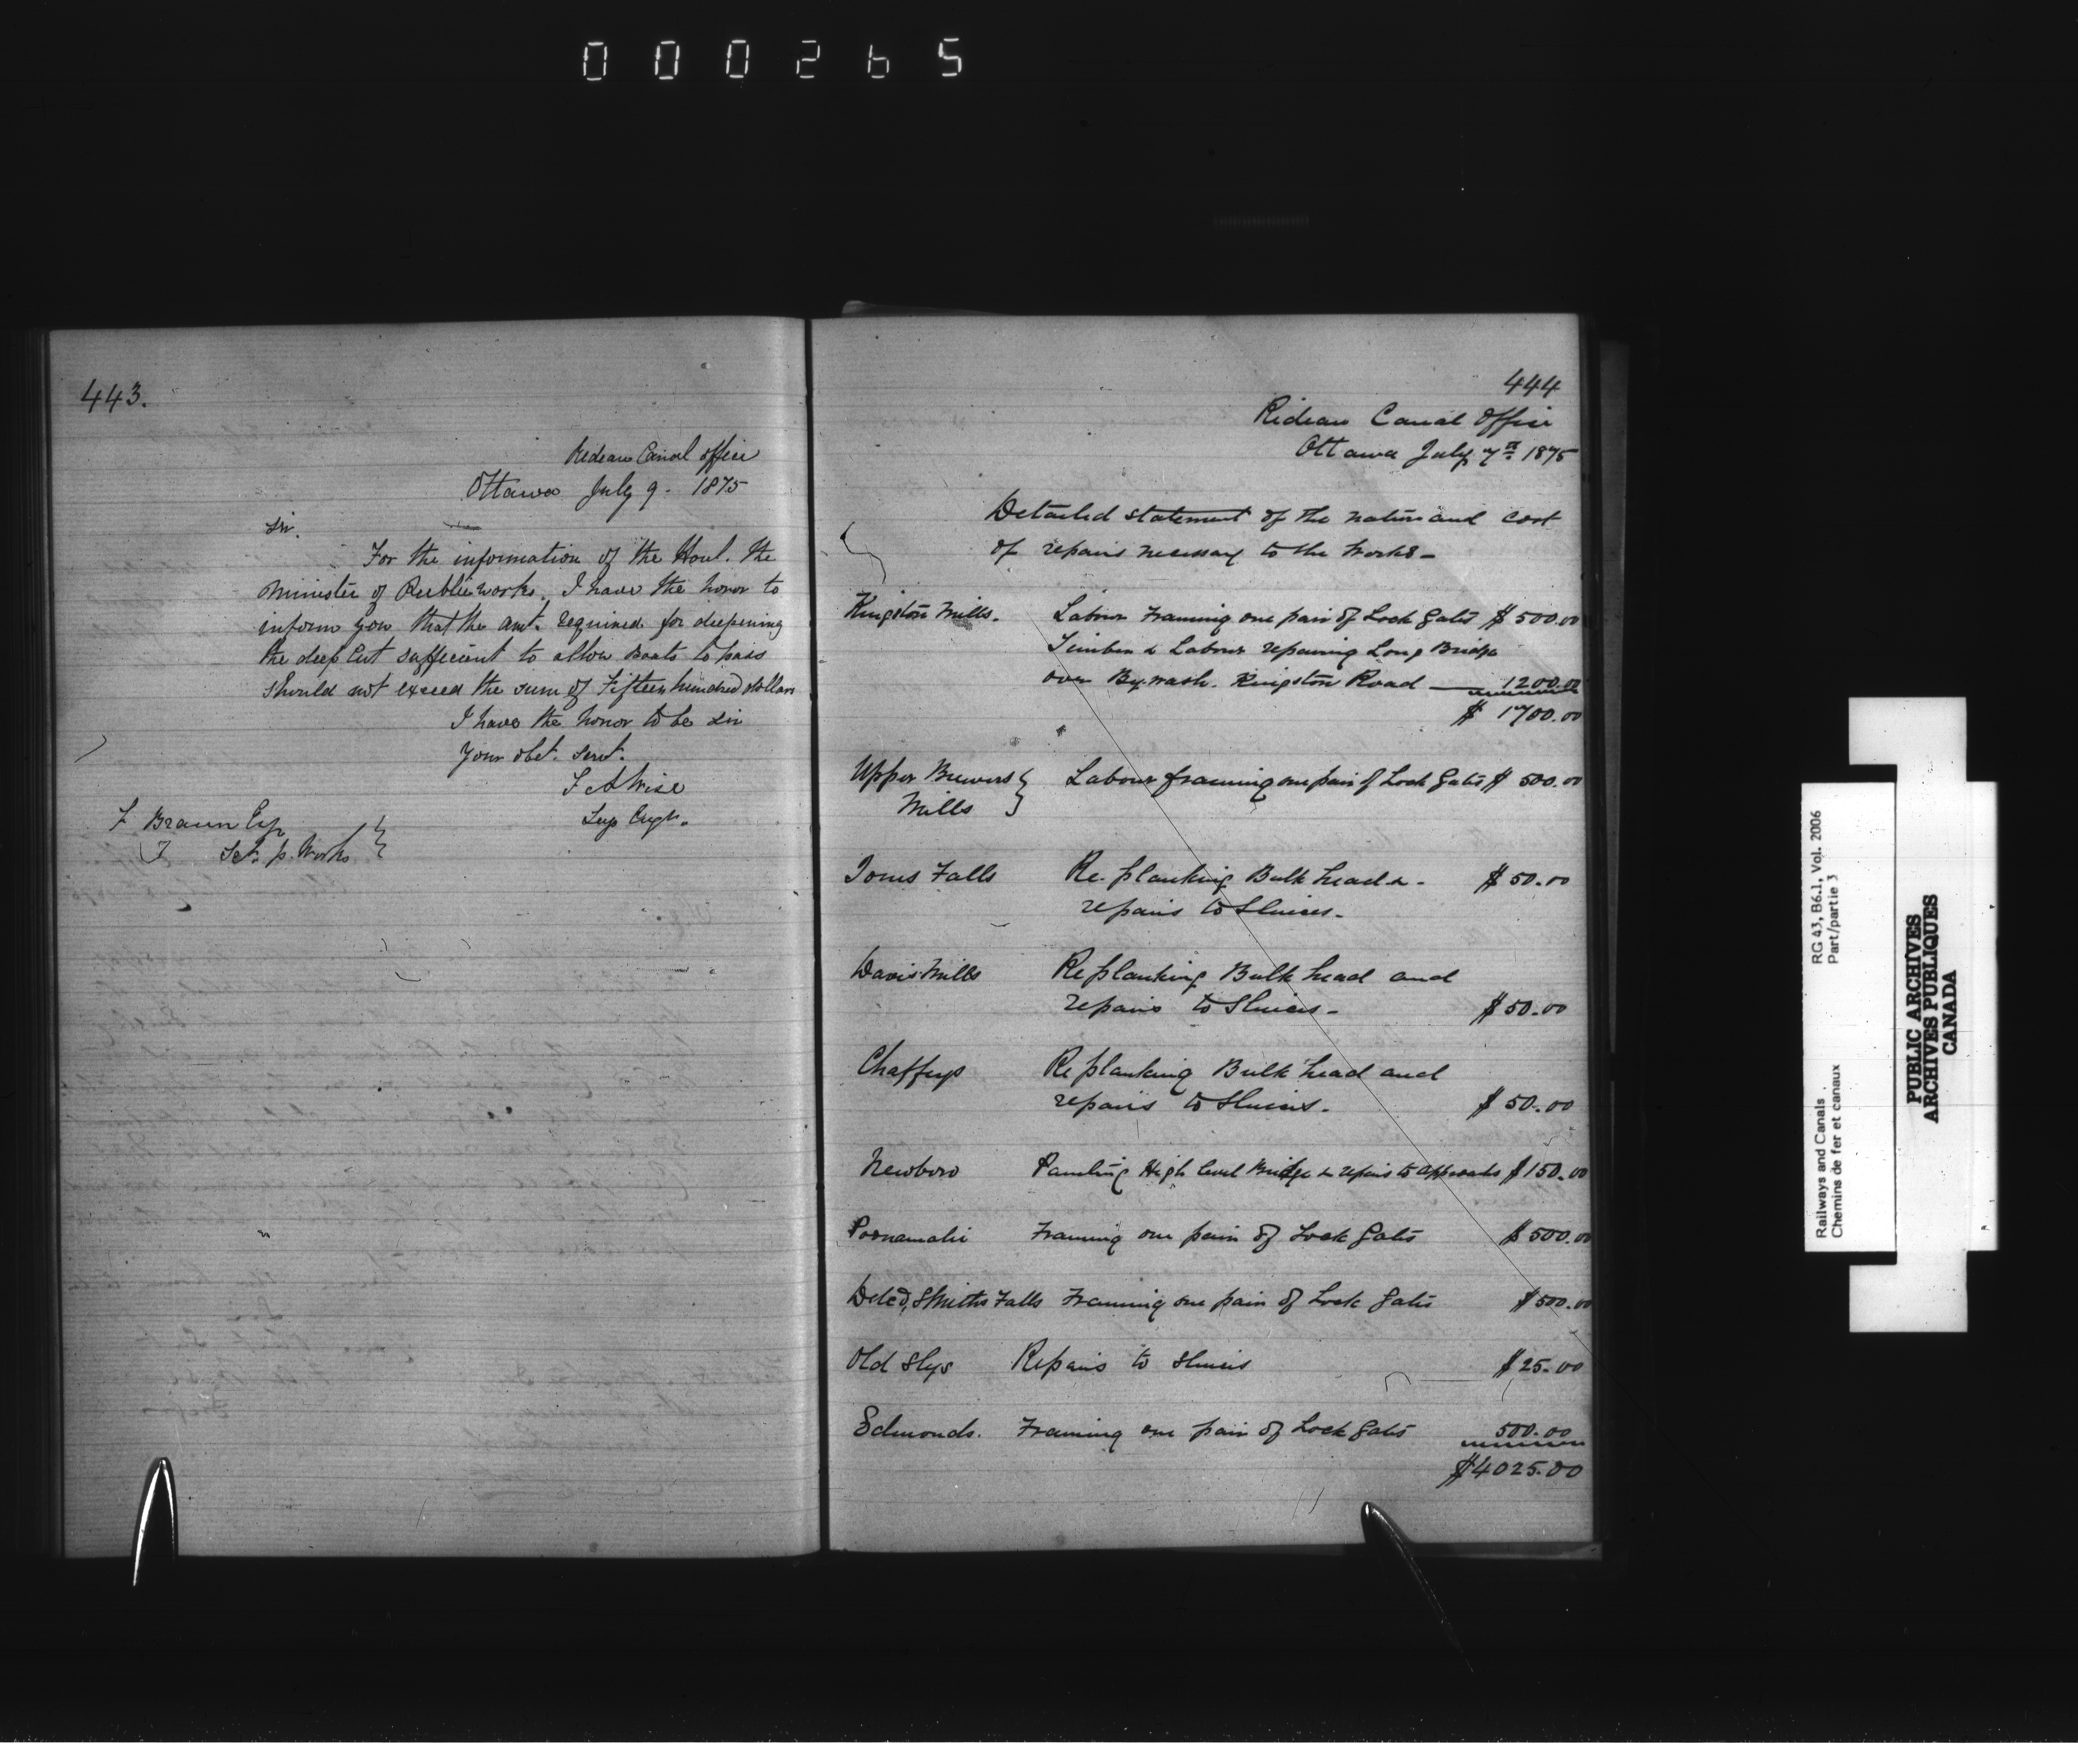 000265
443.
Rideau Canal Office
Ottawa July 9. 1875
Sir.
For the information of the Honl. the
Minister of Public Works. I have the honor to
inform you that the amt. required for deepening
the deep Cut sufficient to allow Boats to pass
should not exceed the sum of Fifteen hundred dollars
I have the honor to be Sir
Your obt. Servt.
F A Wise
Sup Engr.
F Braun Esq
Sety p. Works
444
Rideau Canal Office
Ottawa July 7th 1875
Detailed statement of the nature and cost
of repairs necessary to the works -
Kingston Mills. Labour Framing one pair of Lock Gates $ 500.00
Timber & Labour repairing Long Bridge
over By.wash. Kingston Road — 1200.00
$ 1700.00
Upper Brewers } Labour framing one pair of Lock Gates $ 500.00
Mills
Jones Falls Re-planking Bulk head & - $ 50.00
repairs to Sluices -
Davis Mills Replanking Bulk head and
repairs to Sluices - $ 50.00
Chaffeys Replanking Bulk head and
repairs to Sluices - $ 50.00
Newboro Painting High level Bridge & repairs to approaches $ 150.00
Poonamalie Framing one pair of Lock Gates $ 500.00
Detcd, Smiths Falls Framing one pair of Lock Gates $ 500.00
Old Slys Repairs to Sluices $ 25.00
Edmonds. Framing one pair of Lock Gates 500.00
$4025.00
RG 43, B6.1, Vol. 2006
Part/partie 3
Railways and Canals
Chemins de fer et canaux
PUBLIC ARCHIVES
ARCHIVES PUBLIQUES
CANADA